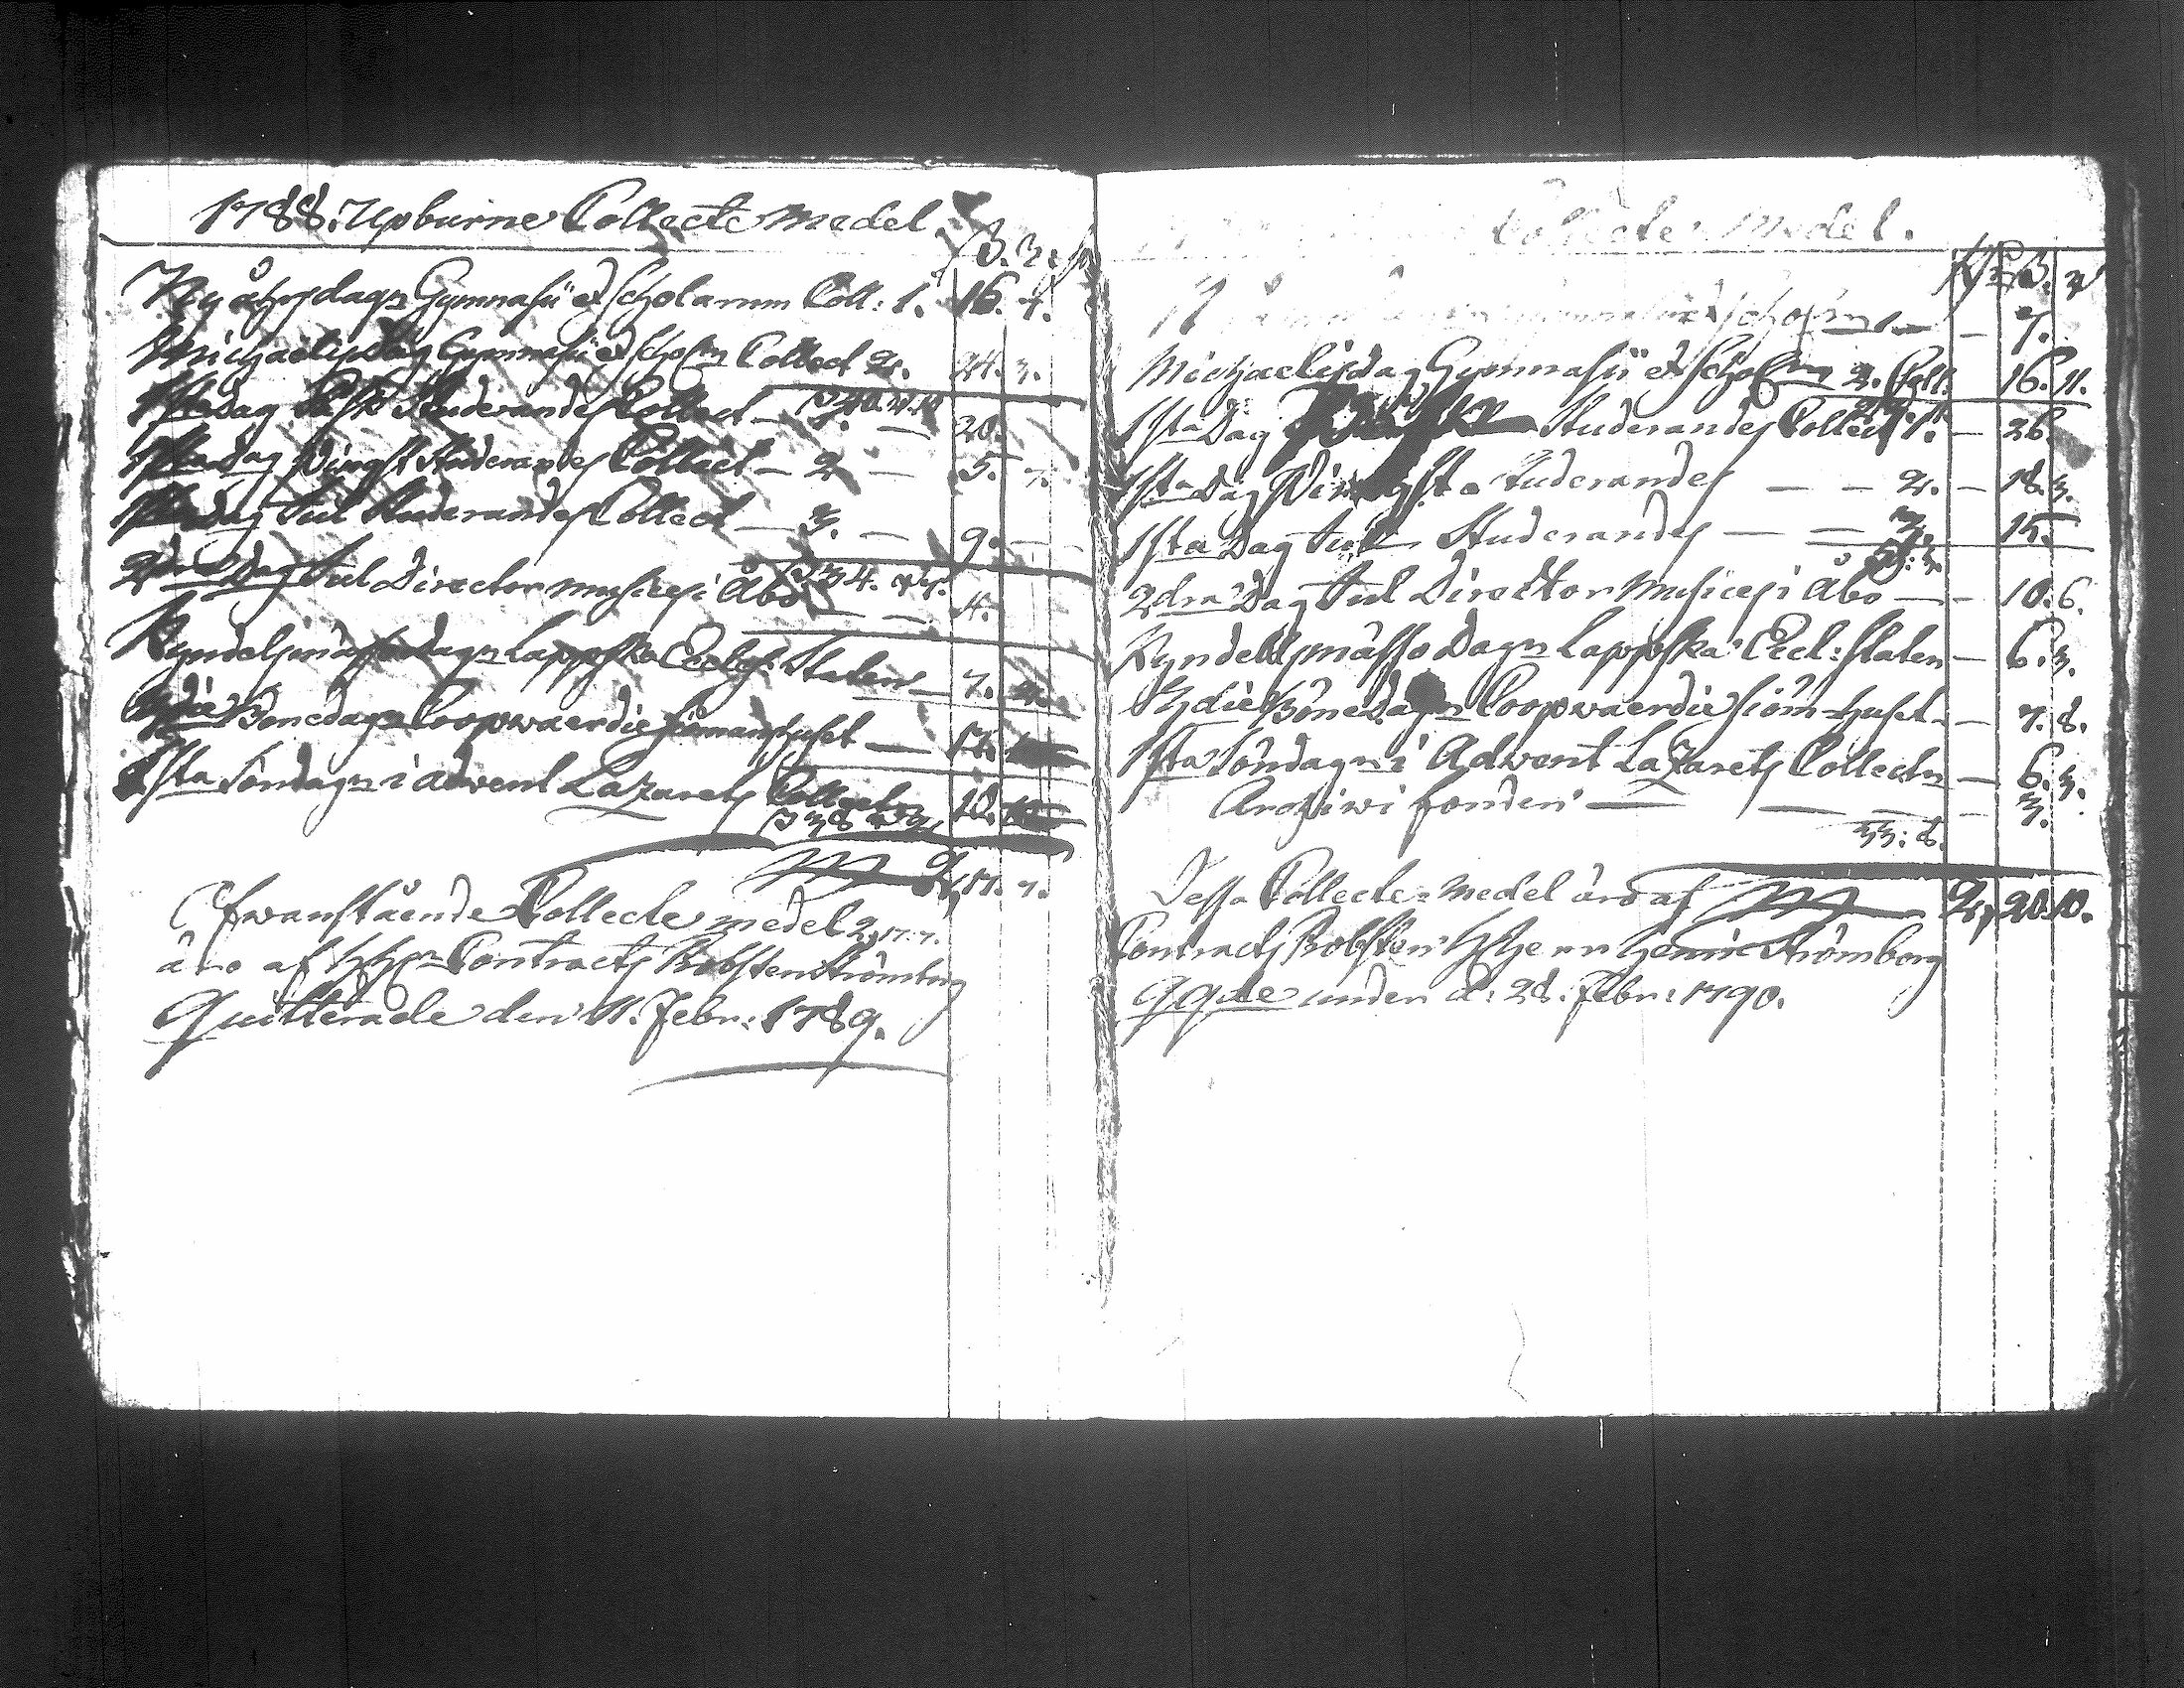 1788. Upburne Collecte medel.
ß. r.
Ny åhrsdagn Gymnasii et Scholarum Coll: 1. 16. 7.
Michaelis dag Gymnasii et Scholrn Collect 2. 24. 3.
40. 10.
1sta dag Påsk Studerandes Collect — 1. — 20.
1sta dag Pingst Studerandes Collect — 2 — 5.
1sta dag Jul Studerandes Collect — 3. — 9. —
34.
2dra Dag Jul Director musices i Åbo — — 4.
Kyndelsmässo dagn Lappska Eccles: Staten — 7.
3die Bönedagn Coopvaerdie siömanshuset —
1sta Söndagn i advent Lazarets Collecten 10.
38
2, 17. 7.
Ofwanstående Collecte medel 2, 17. 7.
äro af HHrn Contracts Probsten Strömborg
Quitterade den 11. Febr: 1789.
Collecte Medel.
ß.
Scholrn 1 — — 7.
Michaelisdag Gymnasii et Scholrn 2. Coll: 16. 11.
1sta Dag Studerandes Collect 1. — 26.
1sta Dag Pingst Studerandes — — 2. — 18. 3.
1sta Dag Jul Studerandes — — 3. 15.
2dra Dag Jul Director Musices i Åbo — — 10. 6.
Kyndellsmässo Dagn Lappska Eccl: Staten — 6. 3.
3die Bönedagn Coopvaerdie siöm-huset — — 7. 8.
1sta Söndagn i Advent Lazarets Collectn — 6. 3.
Archiwi fonden — — — 3.
33: 8.
Dessa Collecte-medel äro af 2, 20. 10.
Contracts Probsten HHerr Henric Strömborg
qqde under d: 28. Febr: 1790.